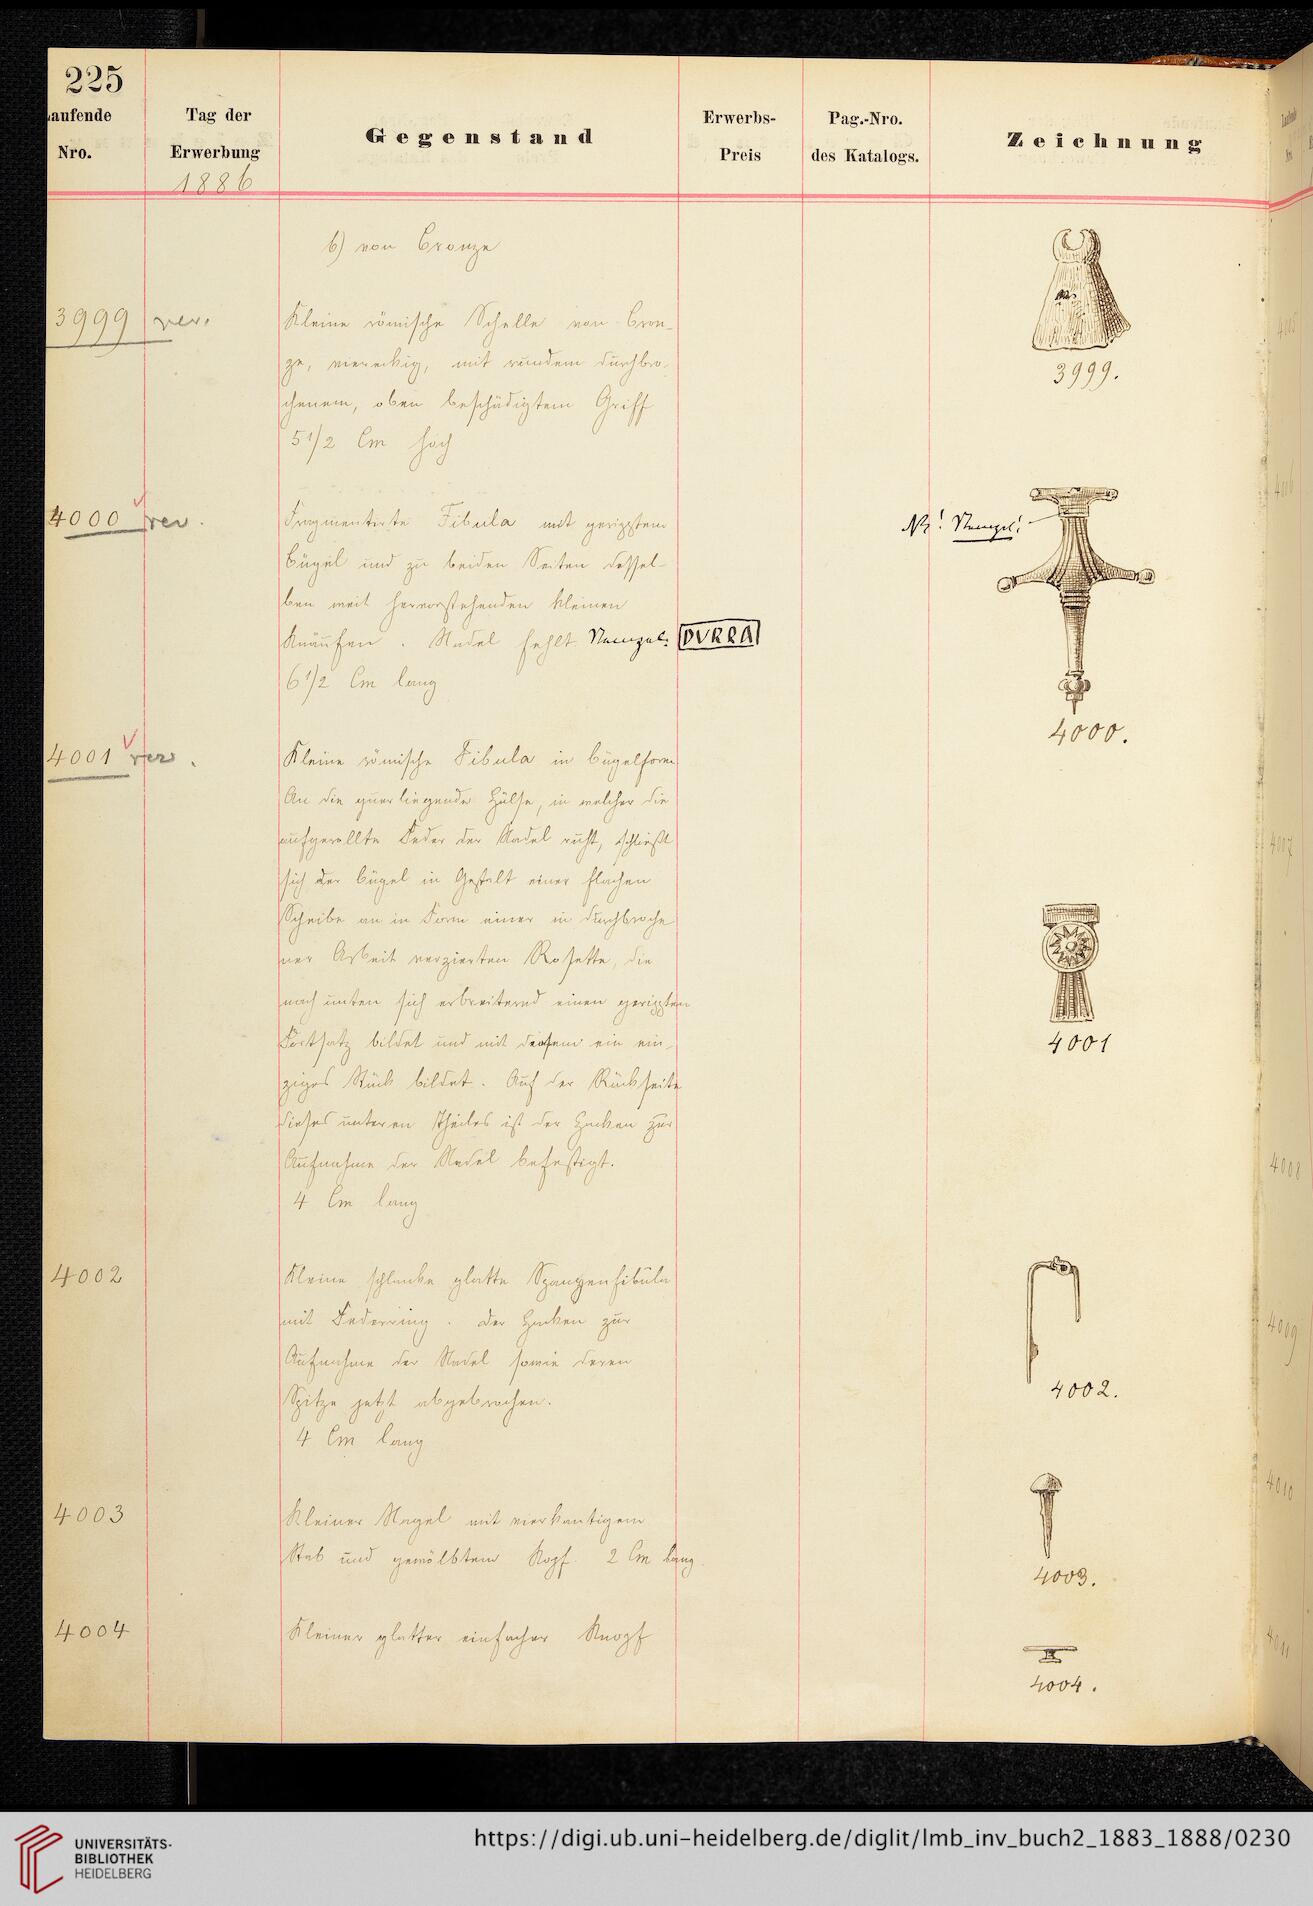 225
Laufende Nro.
Tag der Erwerbung
1886
Gegenstand
Erwerbs-Preis
Pag.-Nro. des Katalogs.
Zeichnung
b) von Bronze
3999 rev.
Kleine römische Schelle von Bron-
ze, viereckig, mit rundem durchbro-
chenem, oben beschädigtem Griff
5 1/2 Cm hoch
3999.
4000 rev.
Fragmentirte Fibula mit geripptem
Bügel und zu beiden Seiten dessel-
ben weit hervorstehenden kleinen
Knäufen. Nadel fehlt. Stempel: DVRRA
6 1/2 Cm lang
Stempel!
4000.
4001 rev.
Kleine römische Fibula in Bügelform
An die querliegende Hülse, in welcher die
aufgerollte Feder der Nadel ruht, schließt
sich der Bügel in Gestalt einer flachen
Scheibe an in Form einer in durchbroche
ner Arbeit verzierten Rosette, die
nach unten sich erbreiternd einen gerippten
Fortsatz bildet und mit diesem ein ein-
ziges Stück bildet. Auf der Rückseite
dieses unteren Theiles ist der Hacken zur
Aufnahme der Nadel befestigt.
4 Cm lang
4001
4002
Kleine schlanke glatte Spangenfibula
mit Federring. Der Hacken zur
Aufnahme der Nadel sowie deren
Spitze jetzt abgebrochen.
4 Cm lang
4002.
4003
Kleiner Nagel mit vierkantigem
Stab und gewölbtem Kopf. 2 Cm lang.
4003.
4004
Kleiner glatter einfacher Knopf
4004.
4007
4008
4009
4010
4011
UNIVERSITÄTS-
BIBLIOTHEK
HEIDELBERG
https://digi.ub.uni-heidelberg.de/diglit/lmb_inv_buch2_1883_1888/0230